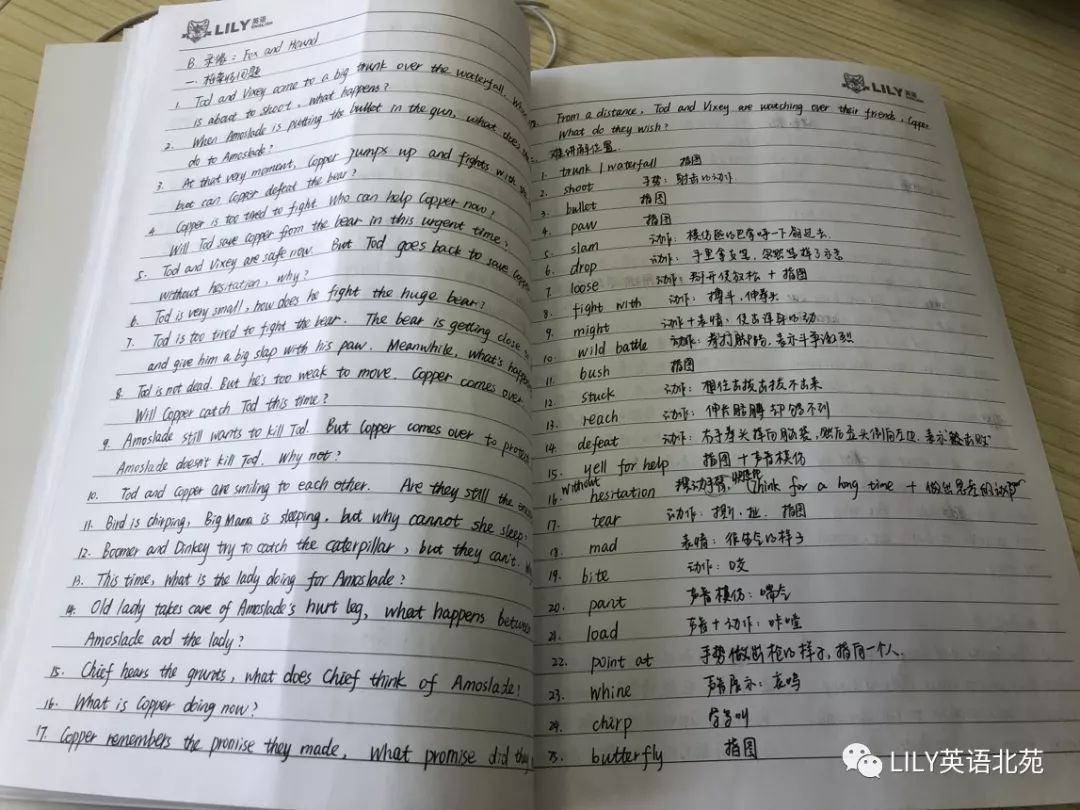 LILY 英语 ENGLISH
B. 录像: Fox and Hound
一. 档案的问题
1. Tod and Vixey come to a big trunk over the waterfall. When
is about to shoot, what happens?
2. When Amoslade is putting the bullet in the gun, what does
do to Amoslade?
3. At that very moment, Copper jumps up and fights with the
but can Copper defeat the bear?
4. Copper is too tired to fight. Who can help Copper now?
Will Tod save Copper from the bear in this urgent time?
5. Tod and Vixey are safe now. But Tod goes back to save Copper
without hesitation, why?
6. Tod is very small, how does he fight the huge bear?
7. Tod is too tired to fight the bear. The bear is getting close
and give him a big slap with his paw. Meanwhile, what's
8. Tod is not dead. But he's too weak to move. Copper comes over
Will Copper catch Tod this time?
9. Amoslade still wants to kill Tod. But Copper comes over to
Amoslade doesn't kill Tod. Why not?
10. Tod and Copper are smiling to each other. Are they still the
11. Bird is chirping, Big Mama is sleeping, but why cannot she sleep?
12. Boomer and Dinkey try to catch the caterpillar, but they can't.
13. This time, what is the lady doing for Amoslade?
14. Old lady takes care of Amoslade's hurt leg, what happens between
Amoslade and the lady?
15. Chief hears the grunts, what does Chief think of Amoslade?
16. What is Copper doing now?
17. Copper remembers the promise they made, What promise did they
LILY 英语
From a distance, Tod and Vixey are watching over their friends, Copper
What do they wish?
二. 难讲解位置
1. trunk / waterfall 指图
2. shoot 手势: 射击的动作
3. bullet 指图
4. paw 指图
5. slam 动作: 模仿熊的巴掌呼一下扇过去.
6. drop 动作: 手里拿东西,
7. loose 动作: 放松 + 指图
8. fight with 动作: 搏斗, 伸拳头
9. might 动作+表情: 使出浑身的劲
10. wild battle 动作: 表示斗争激烈
11. bush 指图
12. stuck 动作: 想往出拔出拔不出来
13. reach 动作: 伸长胳膊却够不到
14. defeat 动作: 右手拳头挥向脑袋, 然后歪头倒向左边, 表示"被击败"
15. yell for help 指图+声音模仿
16. without hesitation think for a long time + 做出思考的动作
17. tear 动作: 撕, 扯. 指图
18. mad 表情: 很生气的样子
19. bite 动作: 咬
20. pant 声音模仿: 喘气
21. load 声音+动作: 咔嚓
22. point at 手势做出枪的样子, 指向一个人.
23. whine 声音展示: 哀鸣
24. chirp 学鸟叫
25. butterfly 指图
LILY英语北苑